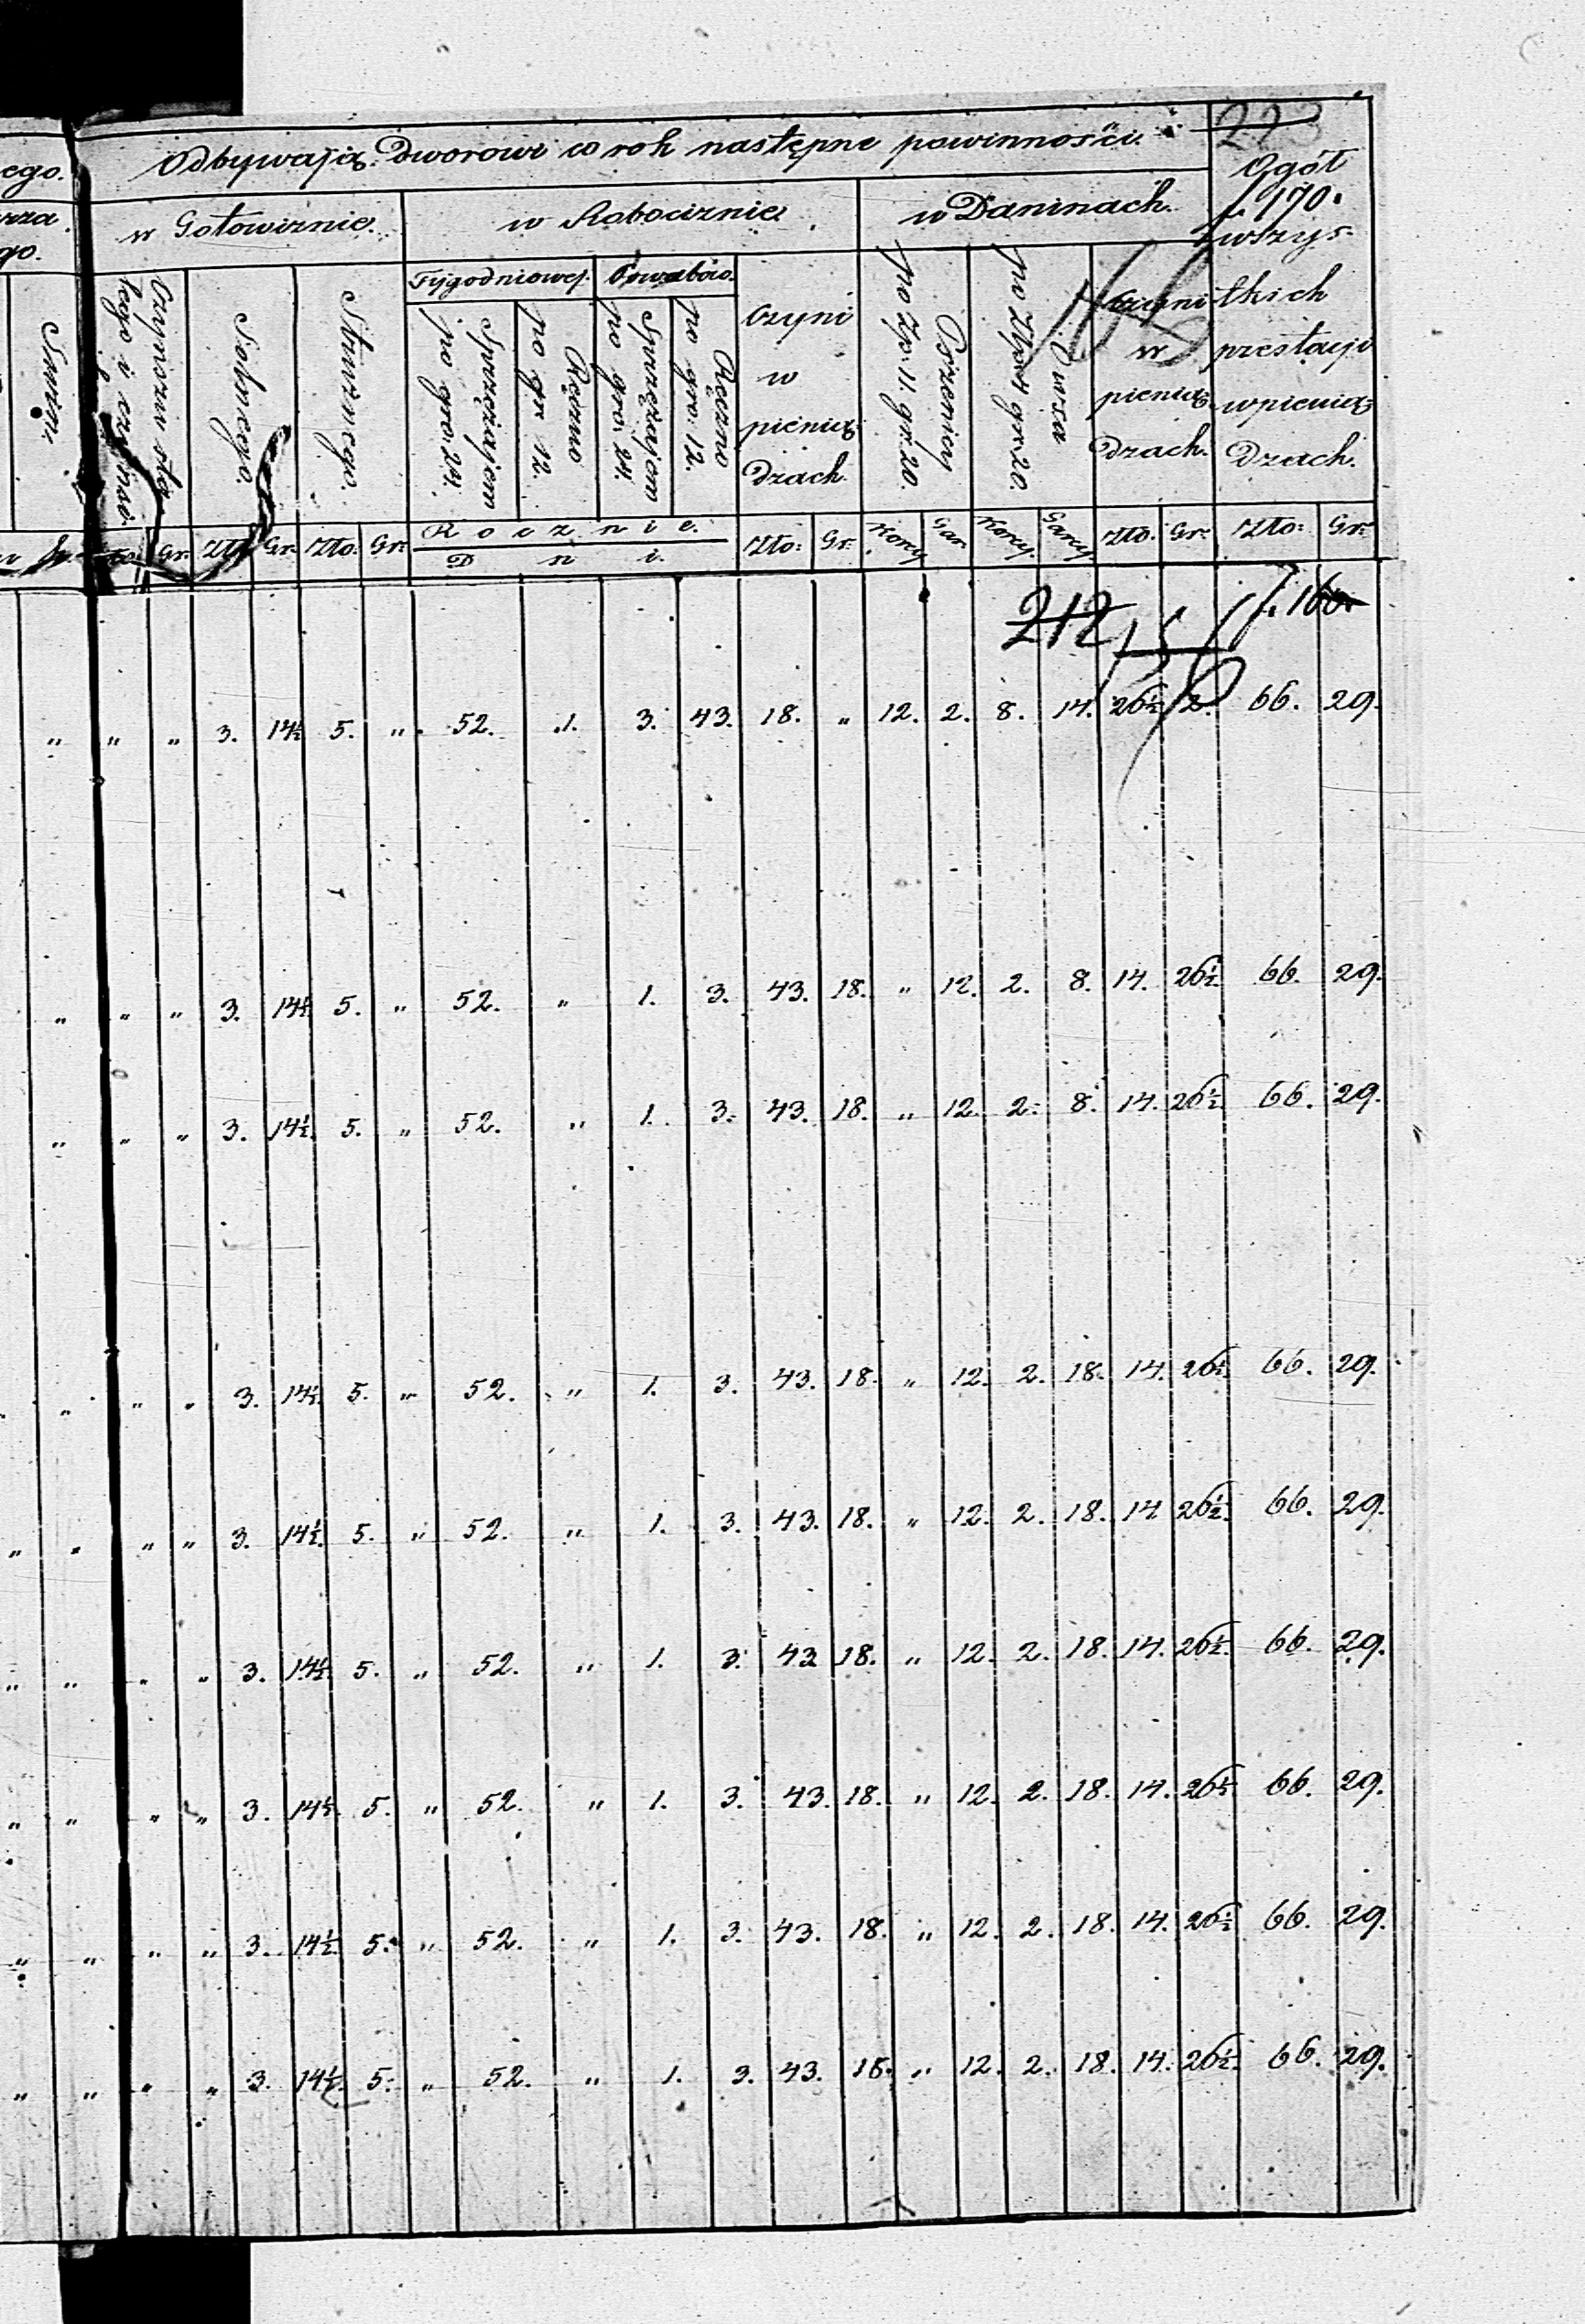 223
Odbywają Dworowi co rok następne powinności.
Ogół
f. 170.
wszys-
tkich
prestacyi
w pienią
dzach.
ego.
go.
w Gotowiznie.
w Robociznie
w Daninach.
Snop.
Czynszu sta
łego i czynsz.
Solnego.
Stróżnego.
Tygodniowej.
Powabów.
Sprzężajem
po gro: 24.
Ręczno
po gr 12.
Sprzężajem
po gro: 24.
Ręczno
po gro: 12.
Czyni
w
pienią
dzach.
Pszenicy
po Zp. 11. gr. 20.
Owsa
po Złp. 4 gr. 20.
Czyni
w
pienią
dzach.
Gr. Złt. Gr. Złto: Gr:
Rocznie.
Dni.
Złto: Gr: Korcy Gar. Korcy. Garcy. Złto. Gr: Złto: Gr:
212
f. 160.
" " " 3. 14½ 5. " 52. 1. 3. 43. 18. " 12. 2. 8. 14. 26½ 2. 66. 29.
" " " 3. 14½ 5. " 52. " 1. 3. 43. 18. " 12. 2. 8. 14. 26½. 66. 29.
" " " 3. 14½. 5. " 52. " 1. 3. 43. 18. " 12. 2. 8. 14. 26½. 66. 29.
" " " " 3. 14½. 5. " 52. " 1. 3. 43. 18. " 12. 2. 18. 14. 26½. 66. 29.
" " " " 3. 14½. 5. " 52. " 1. 3. 43. 18. " 12. 2. 18. 14 26½. 66. 29.
" " " " 3. 14½. 5. " 52. " 1. 3. 43 18. " 12. 2. 18. 14. 26½. 66. 29.
" " " " 3. 14½. 5. " 52. " 1. 3. 43. 18. " 12. 2. 18. 14. 26½. 66. 29.
" " " " 3. 14½. 5. " 52. " 1. 3. 43. 18. " 12. 2. 18. 14. 26½. 66. 29.
" " " " 3. 14½. 5. " 52. " 1. 3. 43. 18. " 12. 2. 18. 14. 26½. 66. 29.